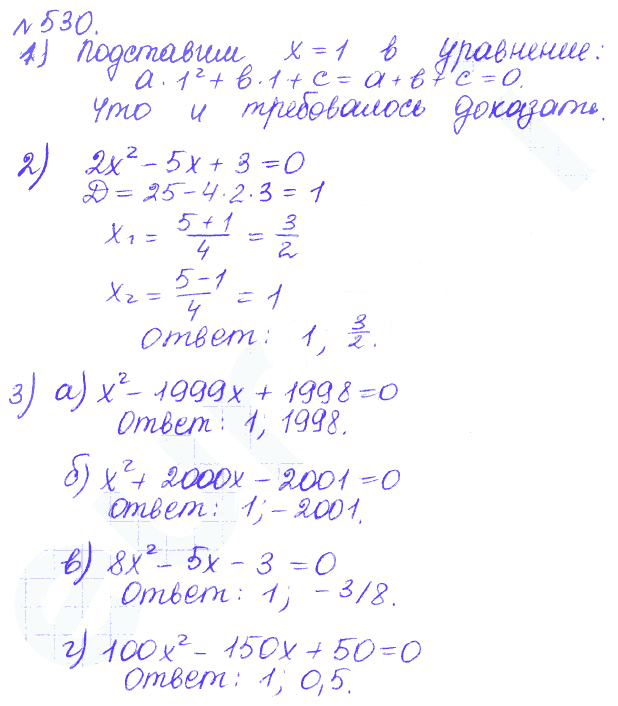 № 530.
1) Подставим x = 1 в уравнение:
a · 1² + в · 1 + c = a + в + c = 0.
Что и требовалось доказать.
2) 2x² − 5x + 3 = 0
Д = 25 − 4 · 2 · 3 = 1
x₁ = (5+1)/4 = 3/2
x₂ = (5−1)/4 = 1
Ответ: 1; 3/2.
3) а) x² − 1999x + 1998 = 0
Ответ: 1; 1998.
б) x² + 2000x − 2001 = 0
Ответ: 1; −2001.
в) 8x² − 5x − 3 = 0
Ответ: 1; −3/8.
г) 100x² − 150x + 50 = 0
Ответ: 1; 0,5.